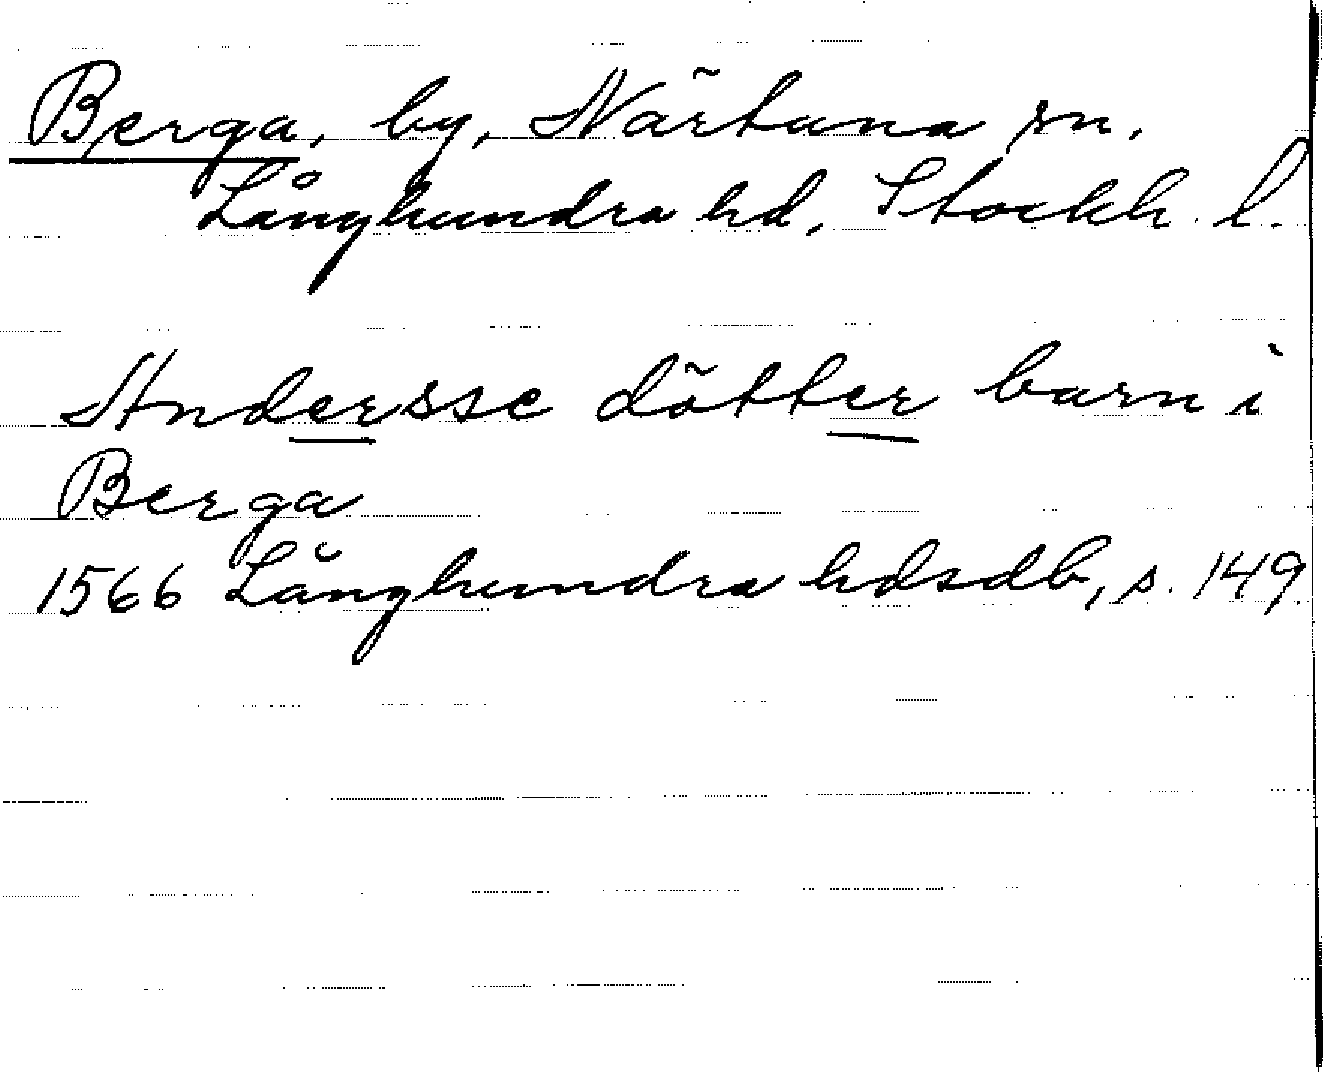 Berga, by, Närtuna sn,
Långhundra hd, Stockh. l.
Andersse dötter barn i
Berga
1566 Långhundra hdsdb, s. 149